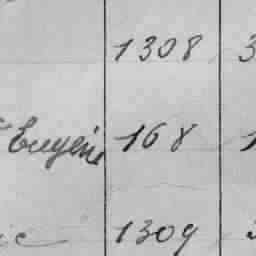 1308 3
Eugénie 168 1
1309